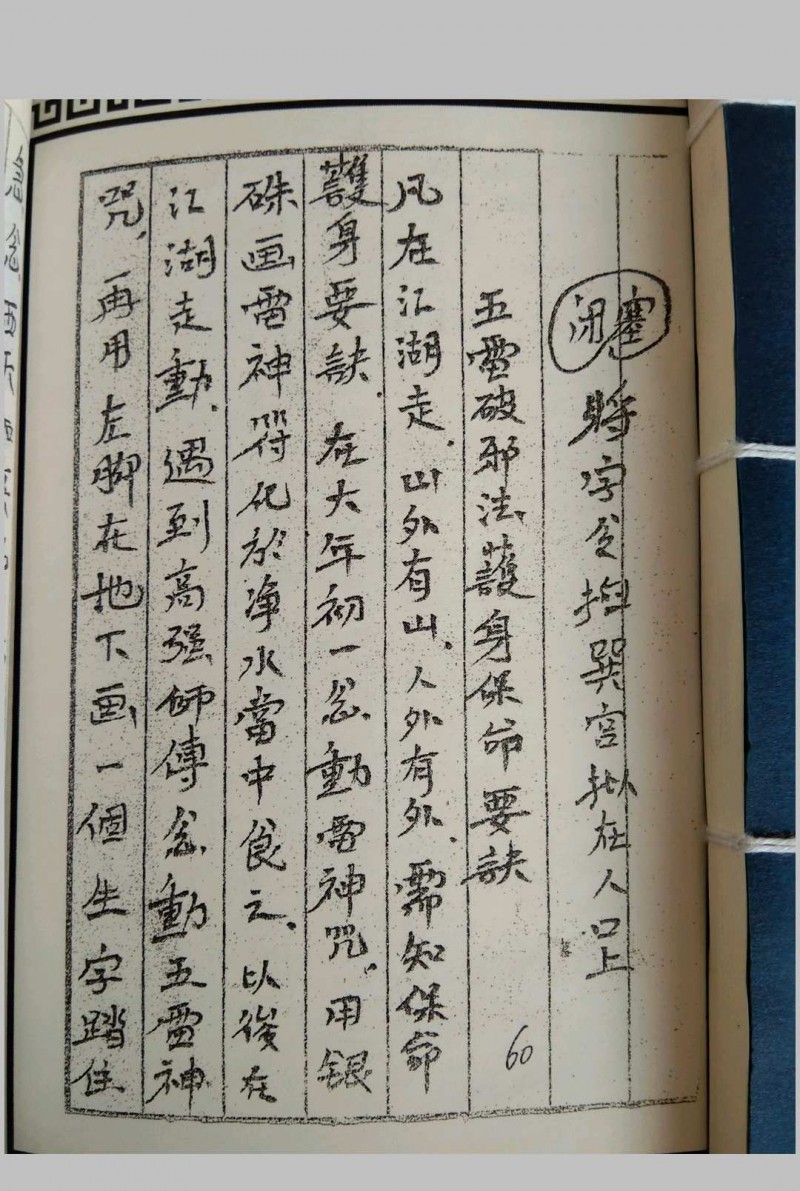 闭塞 將字押巽宫拟在人口上
五雷破邪法護身保命要訣
凡在江湖走.山外有山.人外有外.需知保命
護身要訣.在大年初一念動雷神咒.用银
硃画雷神符化於净水當中食之.以後在
江湖走動.遇到高强师傅念動五雷神
咒.再用左脚在地下画一個生字踏住
60